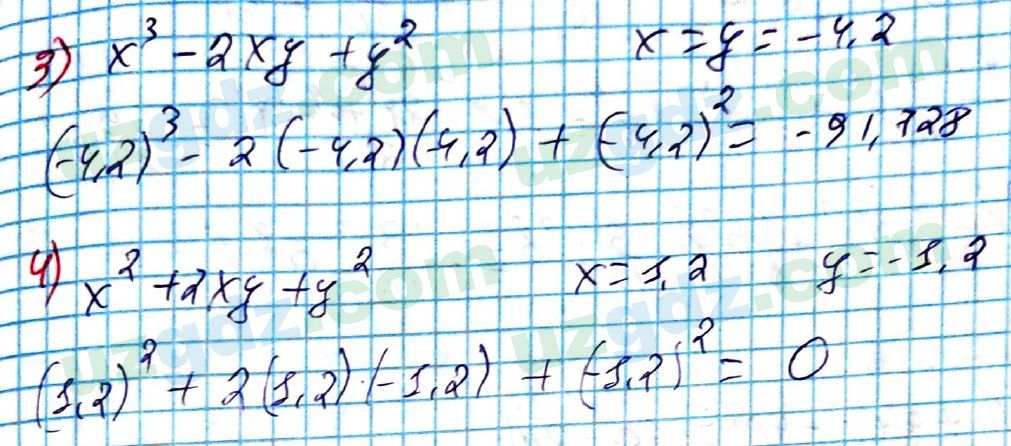 3) x³ - 2xy + y² x = y = -4,2
(-4,2)³ - 2(-4,2)(-4,2) + (-4,2)² = -91,728
4) x² + 2xy + y² x = 1,2 y = -1,2
(1,2)² + 2(1,2)·(-1,2) + (-1,2)² = 0
uzgdz.com
uzgdz.com
uzgdz.com
uzgdz.com